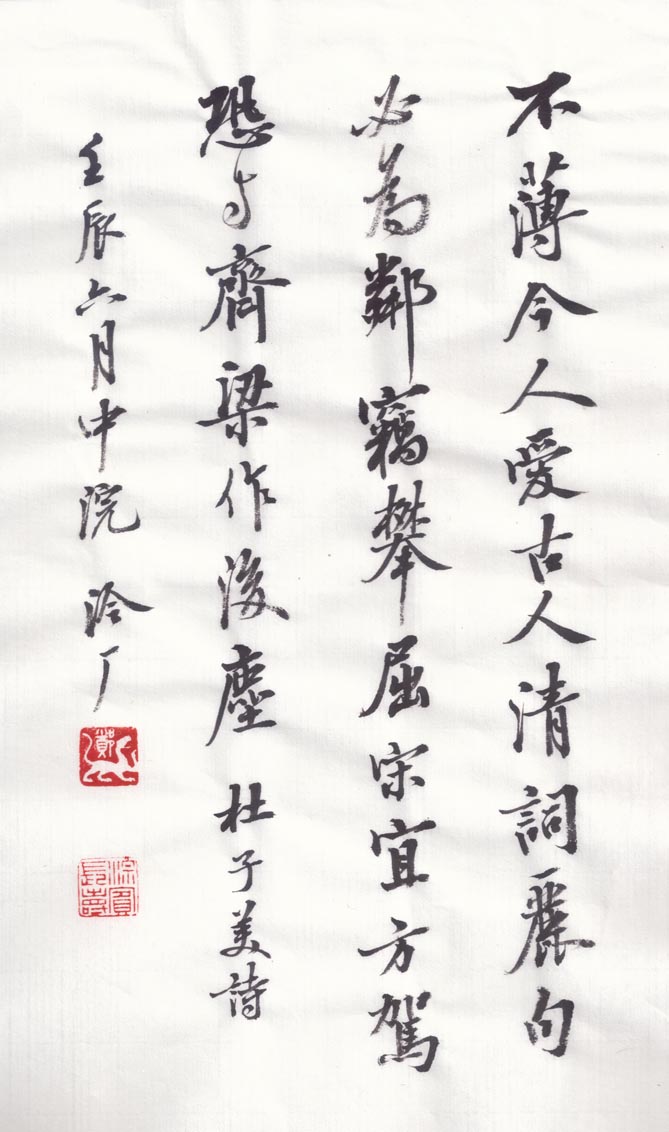 不薄今人愛古人清詞麗句
必為鄰竊攀屈宋宜方駕
恐与齊梁作後塵 杜子美詩
壬辰六月中浣 泠厂